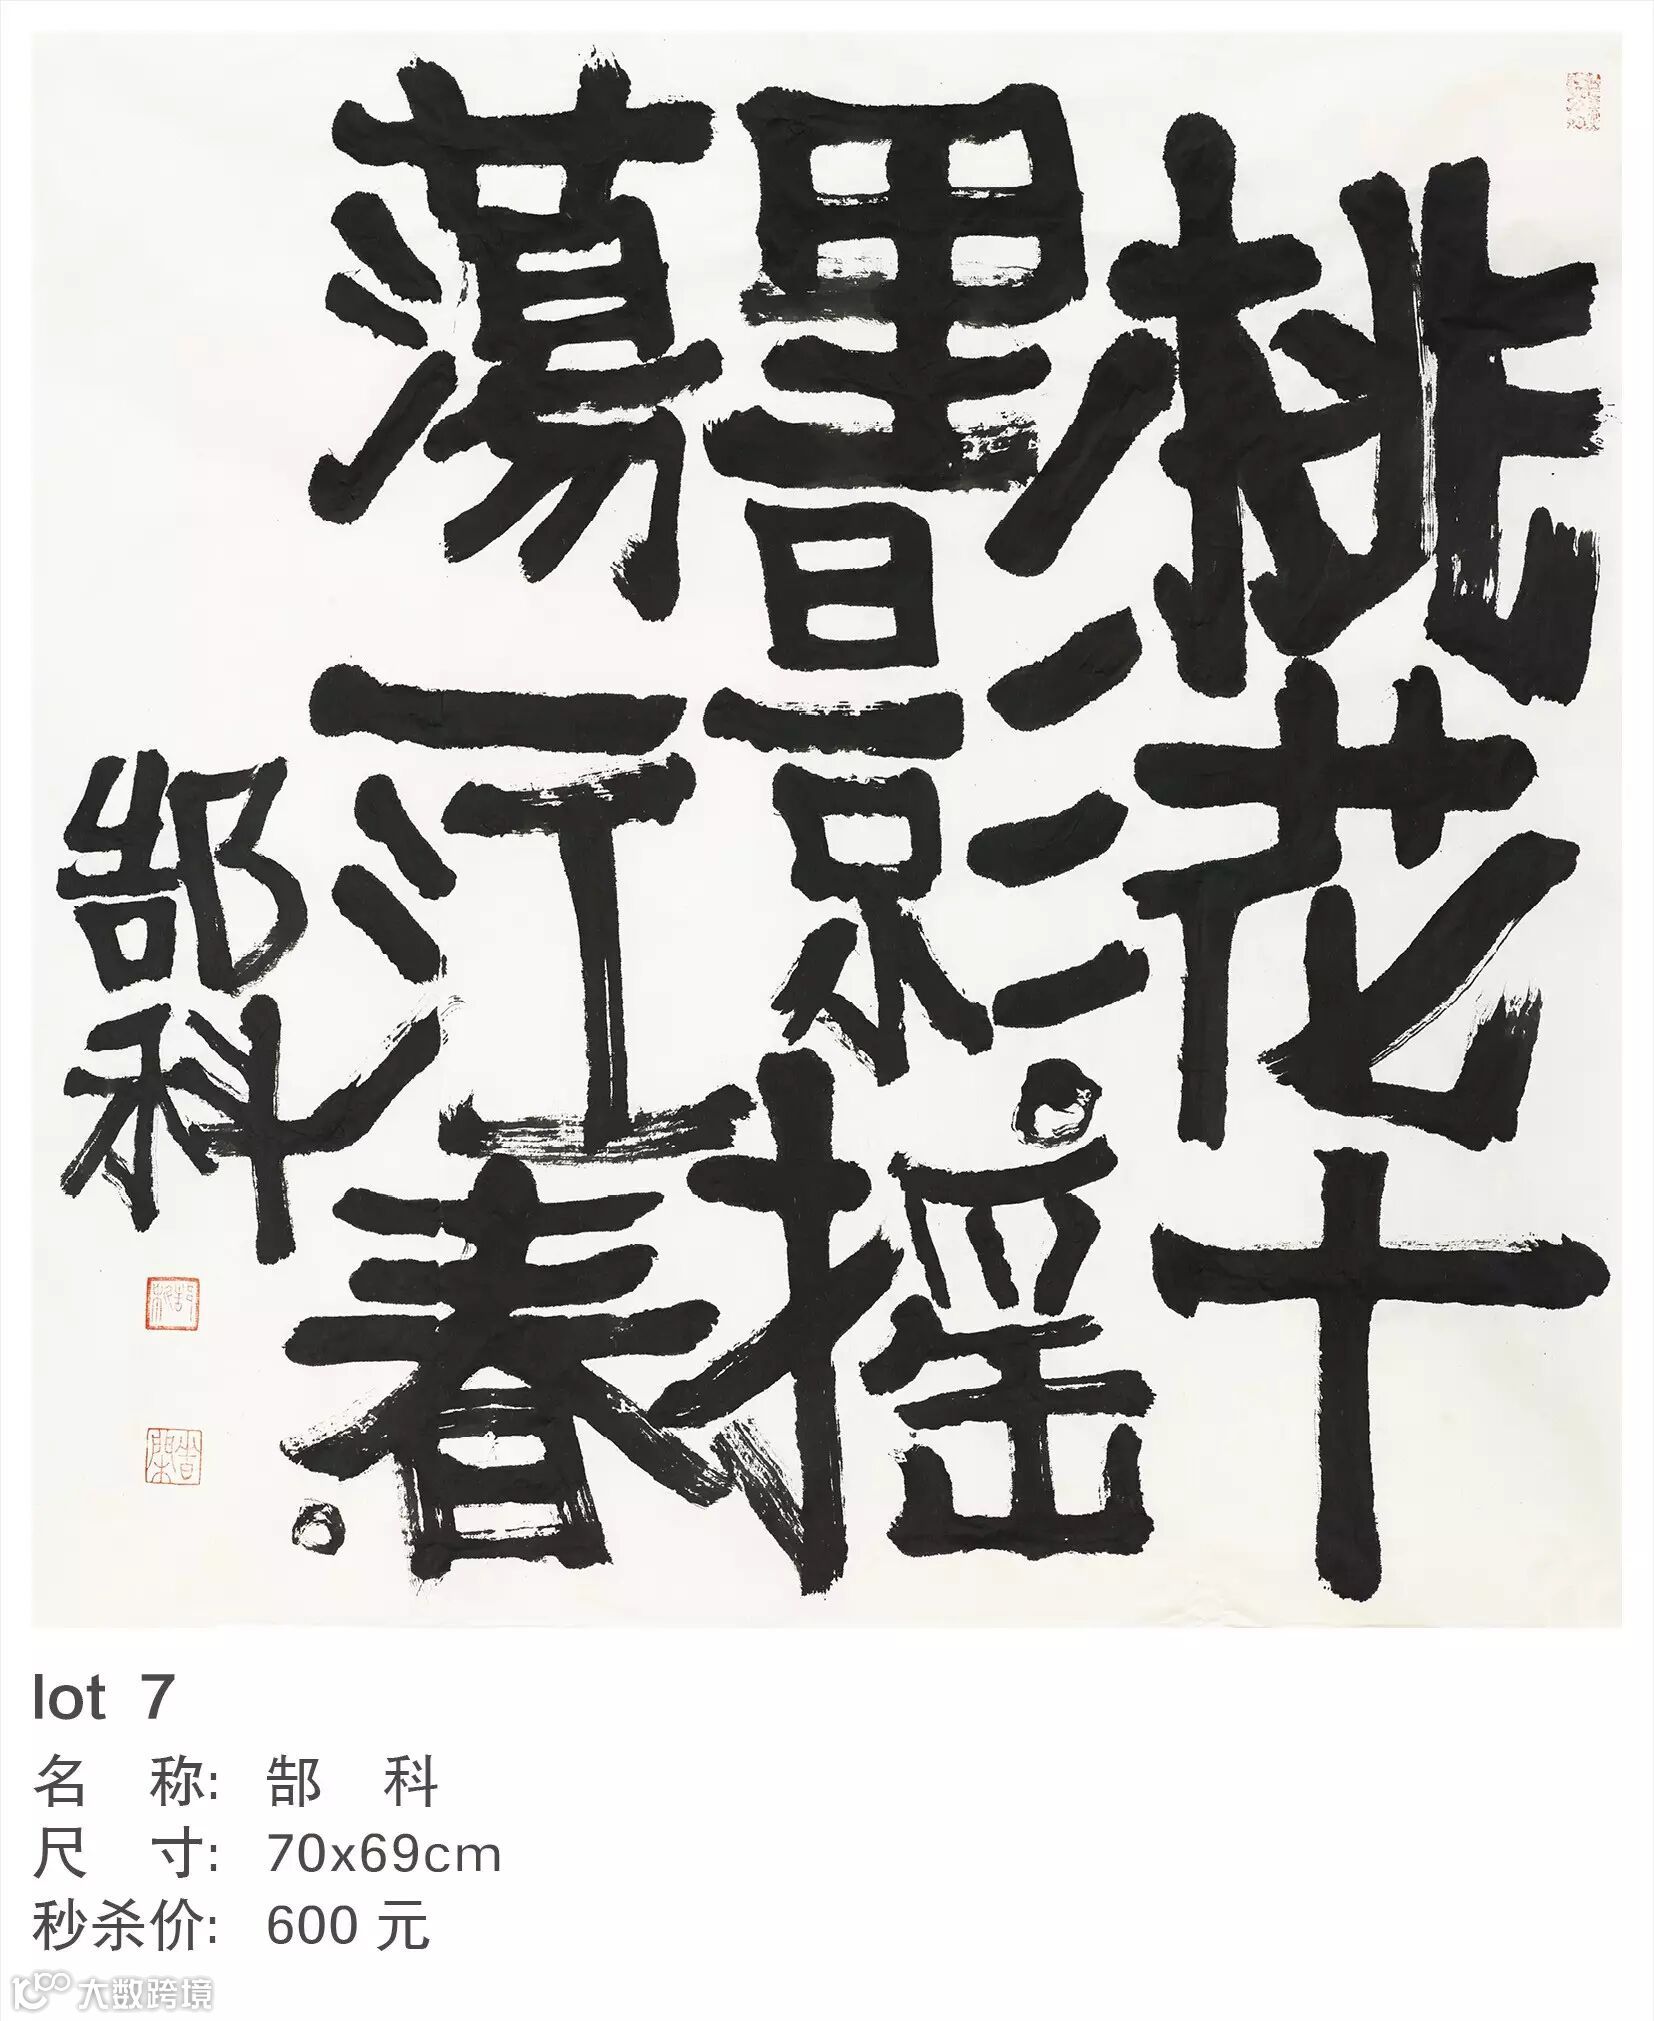 桃花十
里影。摇
荡一江春。
郜科
lot 7
名 称: 郜 科
尺 寸: 70x69cm
秒杀价: 600 元
大数跨境